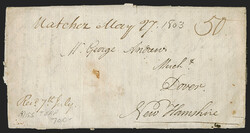 Natchez May 27. 1803 50
Mr. George Andrews
Mercht
Dover
New Hamshire
Recd 7th July